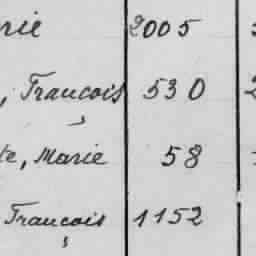 rie 2005
, Francois 530
te, Marie 58
Francois 1152